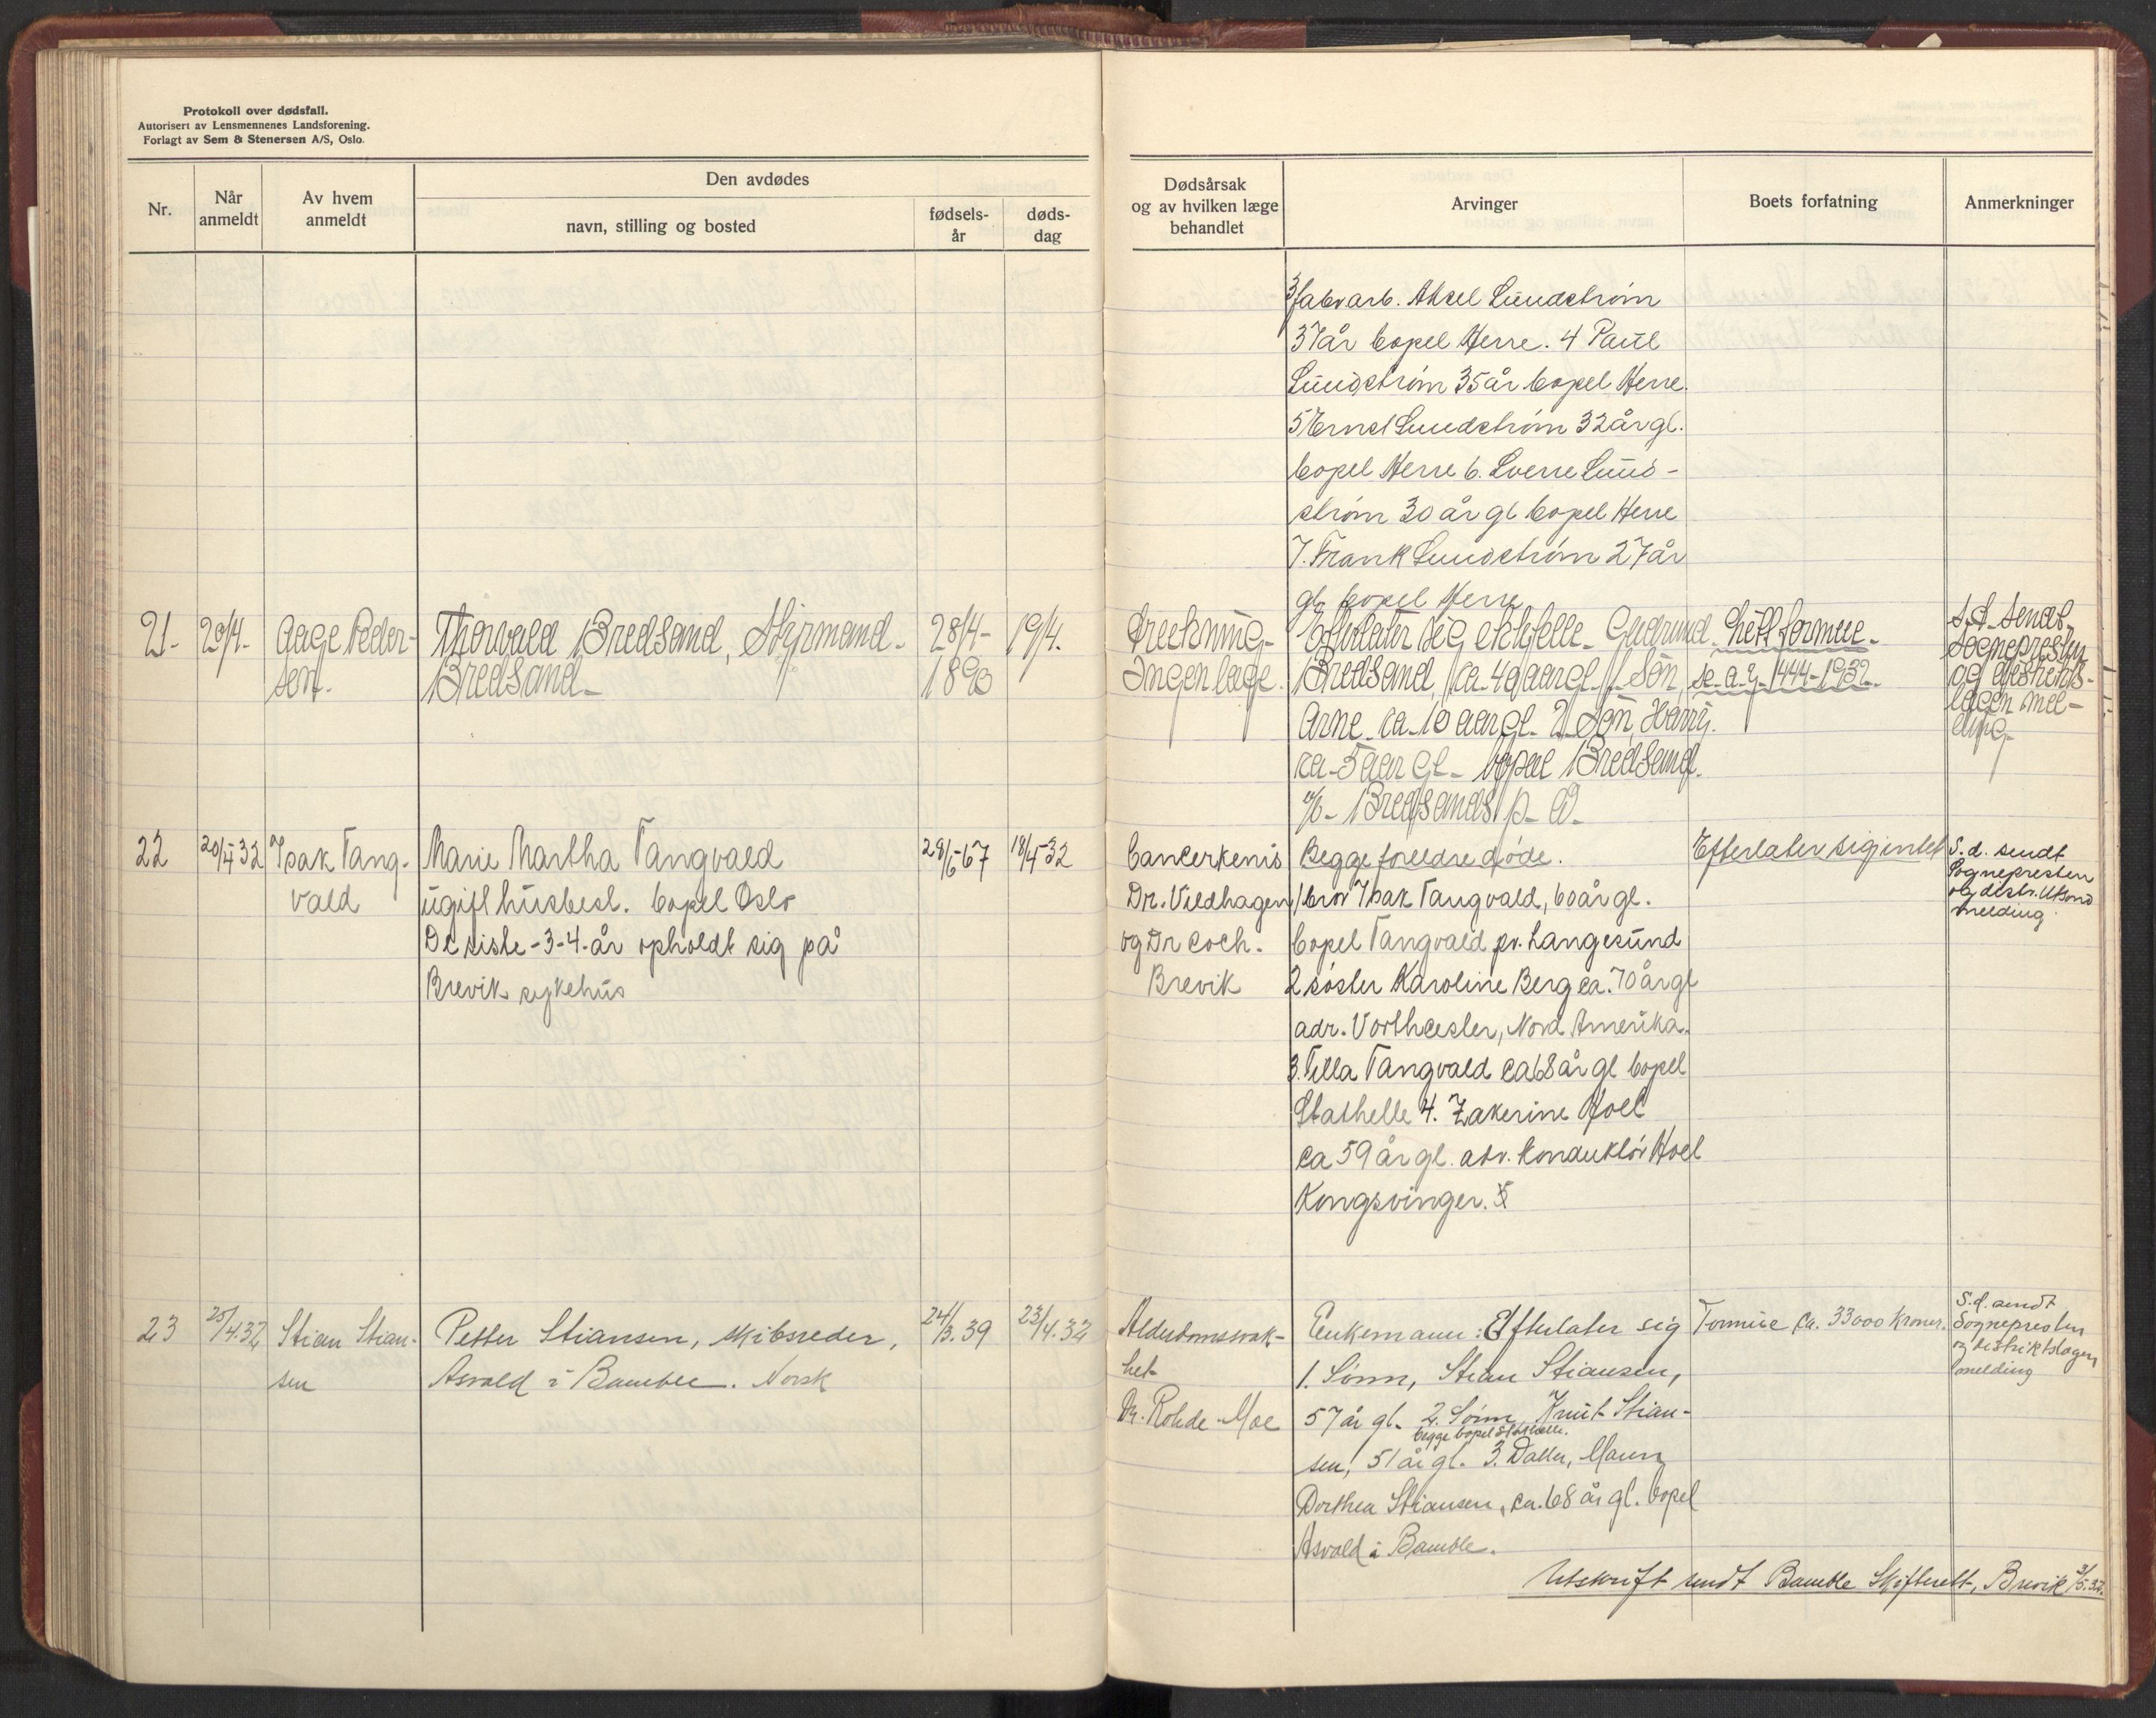 Protokoll over dødsfall.
Autorisert av Lensmennenes Landsforening.
Forlagt av Sem & Stenersen A/S, Oslo.
Nr.
Når
anmeldt
Av hvem
anmeldt
Den avdødes
navn, stilling og bosted
fødsels-
år
døds-
dag
Dødsårsak
og av hvilken læge
behandlet
Arvinger
Boets forfatning
Anmerkninger
3 fabr arb. Aksel Lundstrøm
37 år bopel Herre. 4 Paul
Lundstrøm 35 år bopel Herre.
5 Ernst Lundstrøm 32 år gl.
bopel Herre 6. Sverre Lund-
strøm 30 år gl bopel Herre
7. Frank Lundstrøm 27 år
gl. bopel Herre
21-
20/4-
Aage Peder-
sen.
Thorvald Bredsand, Styrmand.
Bredsand
28/4-
1890
19/4.
Drukning-
Ingen læge.
Efterlater sig ektefelle Gudrund
Bredsand, ca. 40 aar gl. 1 Søn
Arne ca. 10 aar gl. 2 Søn, Harry.
ca- 5 aar gl- bopæl Bredsand.
Bredsands p. å.
Litt formue.
se. a. g. 444-1932.
S.d. sendt
Sognepresten
og distrikts-
lægen mel-
ding
22
20/4-32
Isak Tang-
vald
Marie Martha Tangvald
ugift husbest. bopel Oslo
De siste -3-4- år opholdt sig på
Brevik sykehus
28/6-67
18/4-32
Dr. Vildhagen
og Dr Coch.
Brevik
Begge foreldre døde.
1 bror Isak Tangvald, 60 år gl.
bopel Tangvald pr. Langesund
2 søster Karoline Berg ca. 70 år gl
adr. Vorthcester, Nord Amerika.
3. Tilla Tangvald ca 68 år gl bopel
Stathelle 4. Zakerine Hoel
ca 59 år gl. adr. Konduktør Hoel
Kongsvinger.
Efterlater sig intet
S. d. sendt
Sognepresten
og distr.
melding
23
25/4.32
Stian Stian-
sen
Petter Stiansen, skibsreder,
Asvald i Bamble. Norsk
24/3.39
23/4.32
Alderdomssvak-
het
Dr. Rohde-Moe
Enkemann: Efterlater sig
1. Sønn, Stian Stiansen,
57 år gl. 2. Sønn Knut Stian-
begge bopel Stathelle.
sen, 51 år gl. 3. Datter, Maren
Dorthea Stiansen, ca. 68 år gl. bopel
Asvald i Bamble.
Formue ca. 33000 kroner.
S.d. sendt
Sognepresten
og distriktslægen
melding
Utskrift sendt Bamble Skifterett, Brevik 3/5.32.